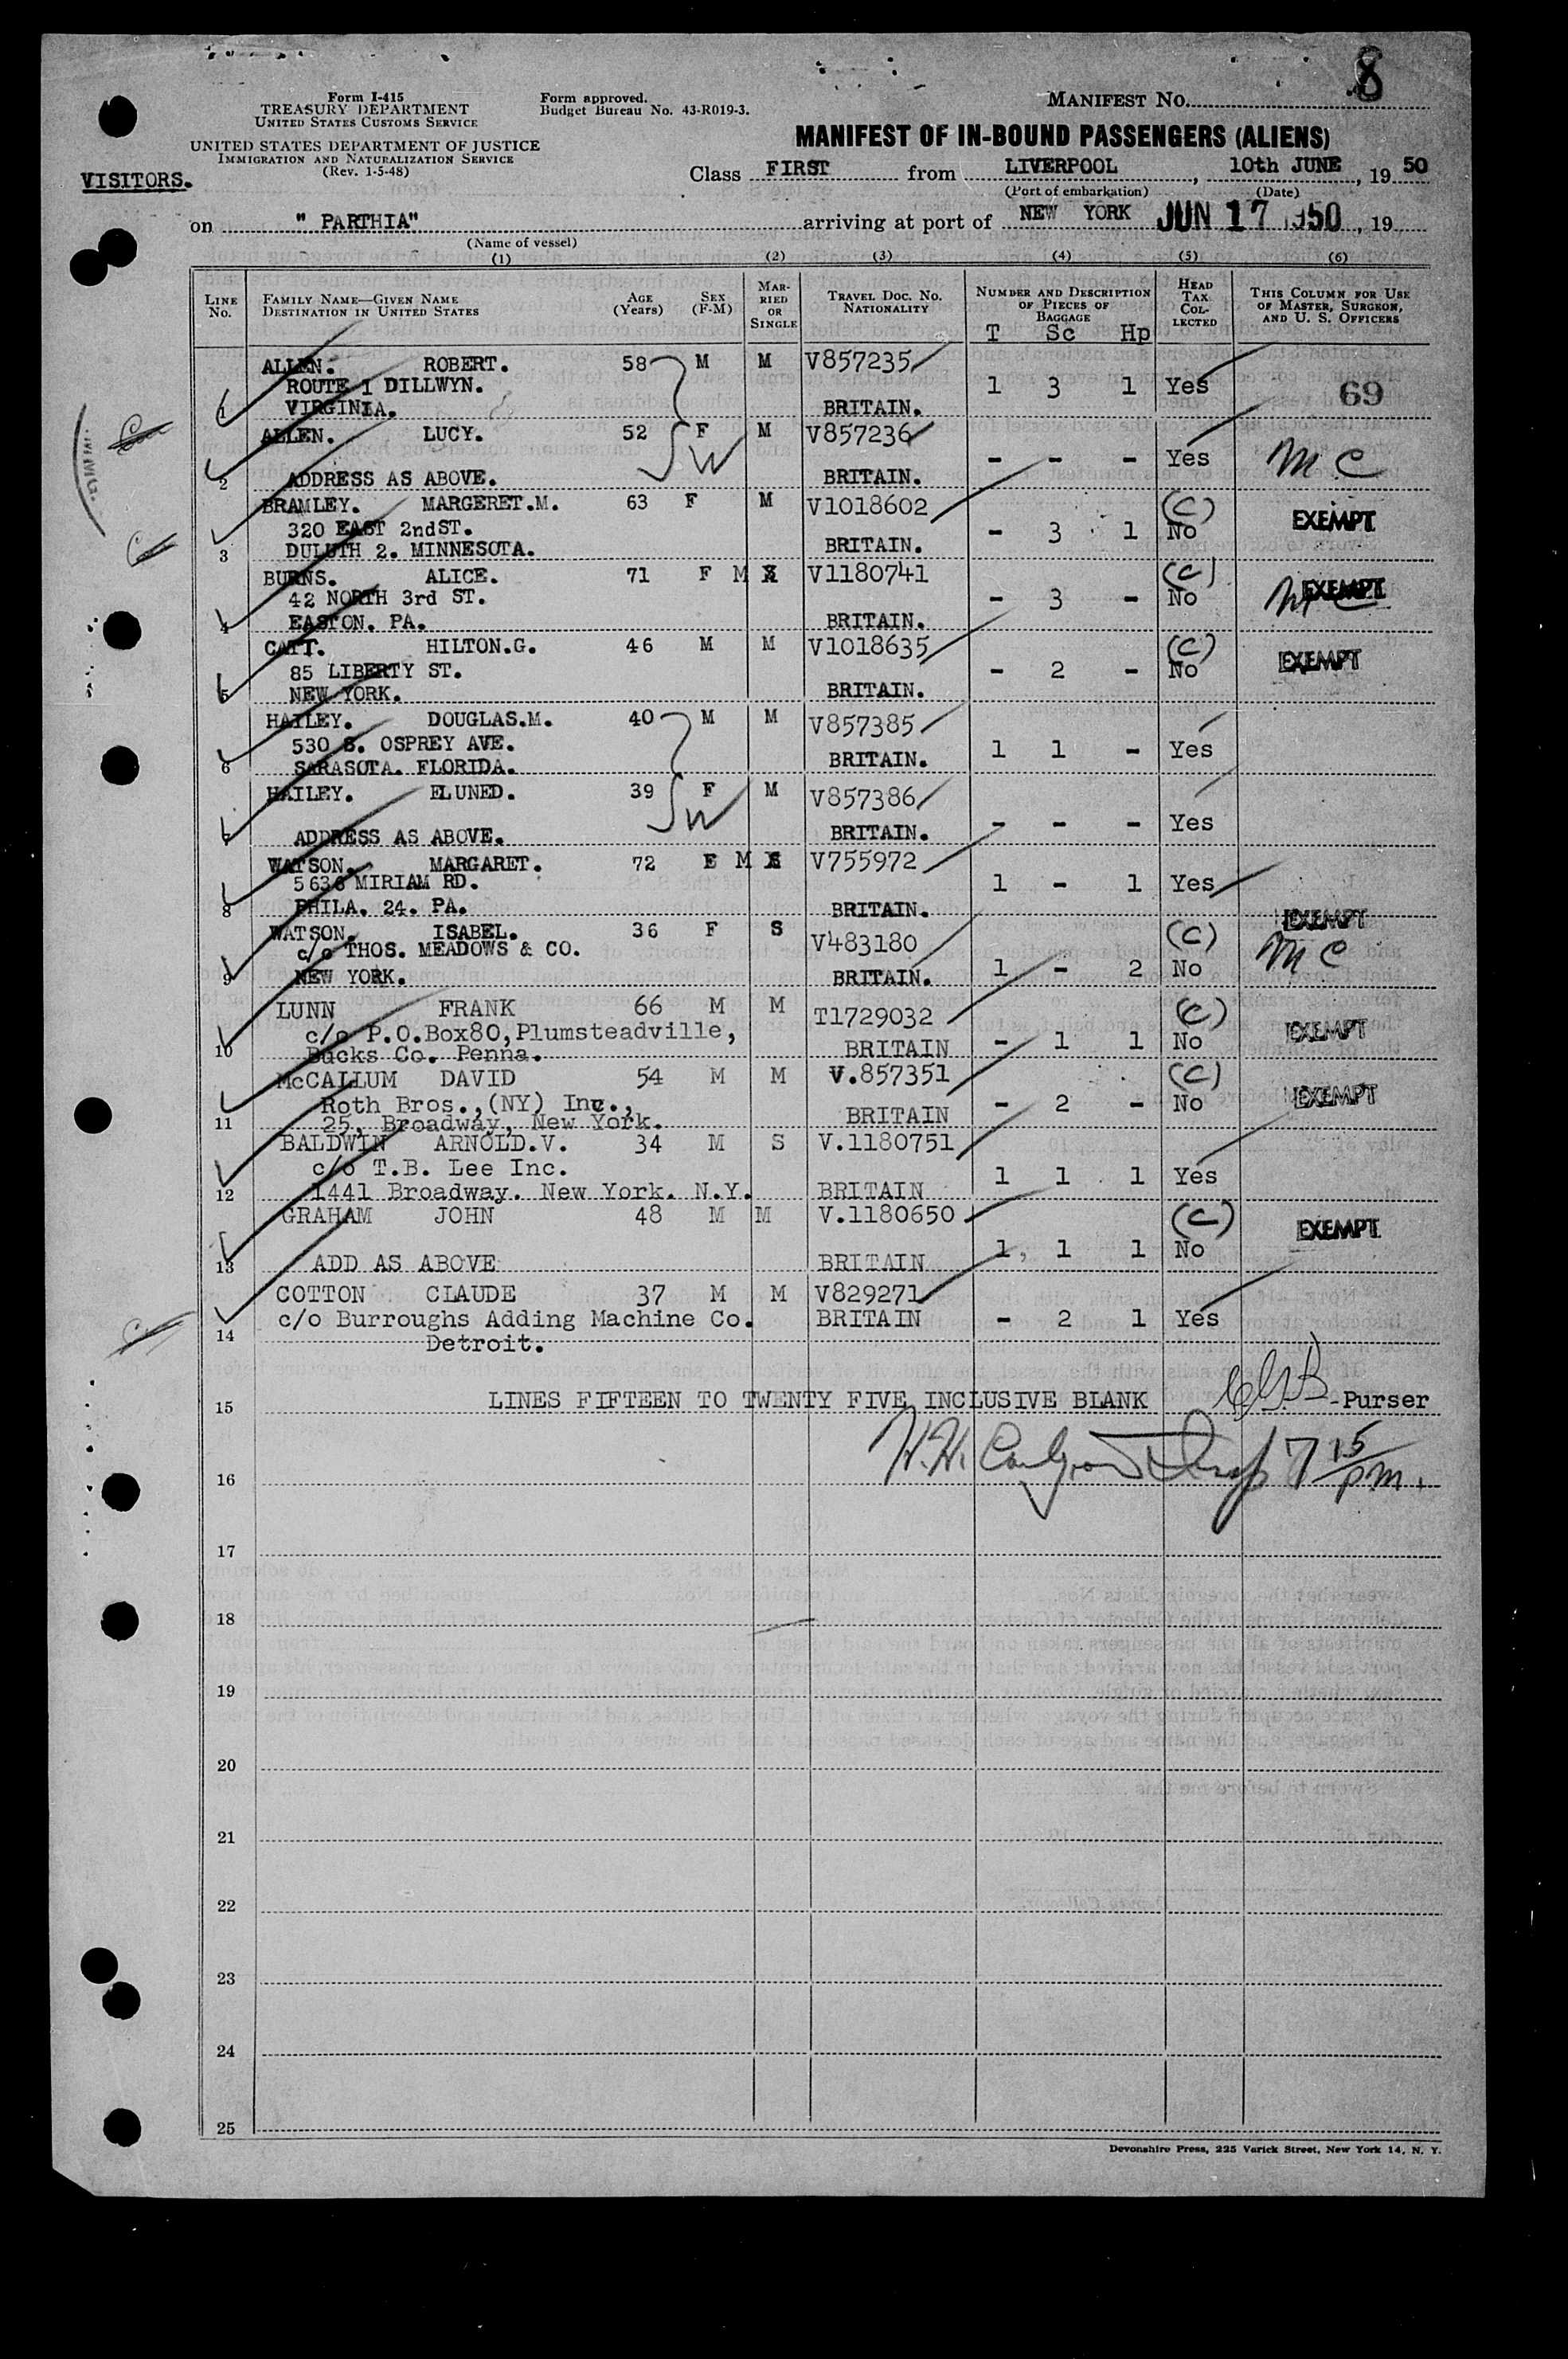 8
Form I-415
TREASURY DEPARTMENT
UNITED STATES CUSTOMS SERVICE
UNITED STATES DEPARTMENT OF JUSTICE
IMMIGRATION AND NATURALIZATION SERVICE
(Rev. 1-5-48)
Form approved.
Budget Bureau No. 43-R019-3.
MANIFEST No.
MANIFEST OF IN-BOUND PASSENGERS (ALIENS)
VISITORS.
Class FIRST from LIVERPOOL, 10th JUNE, 19 50
(Port of embarkation) (Date)
on " PARTHIA" arriving at port of NEW YORK JUN 17 1950, 19
(Name of vessel)
(1) (2) (3) (4) (5) (6)
LINE No. FAMILY NAME—GIVEN NAME DESTINATION IN UNITED STATES AGE (Years) SEX (F-M) MARRIED OR SINGLE TRAVEL DOC. No. NATIONALITY NUMBER AND DESCRIPTION OF PIECES OF BAGGAGE HEAD TAX COLLECTED THIS COLUMN FOR USE OF MASTER, SURGEON, AND U. S. OFFICERS
T Sc Hp
ALLEN. ROBERT. 58 M M V857235
ROUTE 1 DILLWYN. 1 3 1 Yes 69
1 VIRGINIA. BRITAIN.
ALLEN. LUCY. 52 F M V857236
SW - - - Yes MC
2 ADDRESS AS ABOVE. BRITAIN.
BRAMLEY. MARGERET.M. 63 F M V1018602 (C)
320 EAST 2ndST. - 3 1 No EXEMPT
3 DULUTH 2. MINNESOTA. BRITAIN.
BURNS. ALICE. 71 F M V1180741 (C)
42 NORTH 3rd ST. - 3 - No EXEMPT MC
4 EASTON. PA. BRITAIN.
CATT. HILTON.G. 46 M M V1018635 (C)
85 LIBERTY ST. - 2 - No EXEMPT
5 NEW YORK. BRITAIN.
HAILEY. DOUGLAS.M. 40 M M V857385
530 S. OSPREY AVE. 1 1 - Yes
6 SARASOTA. FLORIDA. BRITAIN.
HAILEY. ELUNED. 39 F M V857386
SW - - - Yes
7 ADDRESS AS ABOVE. BRITAIN.
WATSON. MARGARET. 72 F M S V755972
5636 MIRIAM RD. 1 - 1 Yes
8 PHILA. 24. PA. BRITAIN.
WATSON. ISABEL. 36 F S V483180 (C) EXEMPT
c/o THOS. MEADOWS & CO. 1 - 2 No MC
9 NEW YORK. BRITAIN.
LUNN FRANK 66 M M T1729032 (C)
c/o P.O.Box80,Plumsteadville, - 1 1 No EXEMPT
10 Bucks Co. Penna. BRITAIN
McCALLUM DAVID 54 M M V.857351 (C)
Roth Bros.,(NY) Inc., - 2 - No EXEMPT
11 25, Broadway, New York. BRITAIN
BALDWIN ARNOLD.V. 34 M S V.1180751
c/o T.B. Lee Inc. 1 1 1 Yes
12 1441 Broadway. New York. N.Y. BRITAIN
GRAHAM JOHN 48 M M V.1180650 (C)
1, 1 1 No EXEMPT
13 ADD AS ABOVE BRITAIN
COTTON CLAUDE 37 M M V829271
c/o Burroughs Adding Machine Co. BRITAIN - 2 1 Yes
14 Detroit.
15 LINES FIFTEEN TO TWENTY FIVE INCLUSIVE BLANK -Purser
16 H.H. Insp 7 15/pm.
17
18
19
20
21
22
23
24
25
Devonshire Press, 225 Varick Street, New York 14, N. Y.